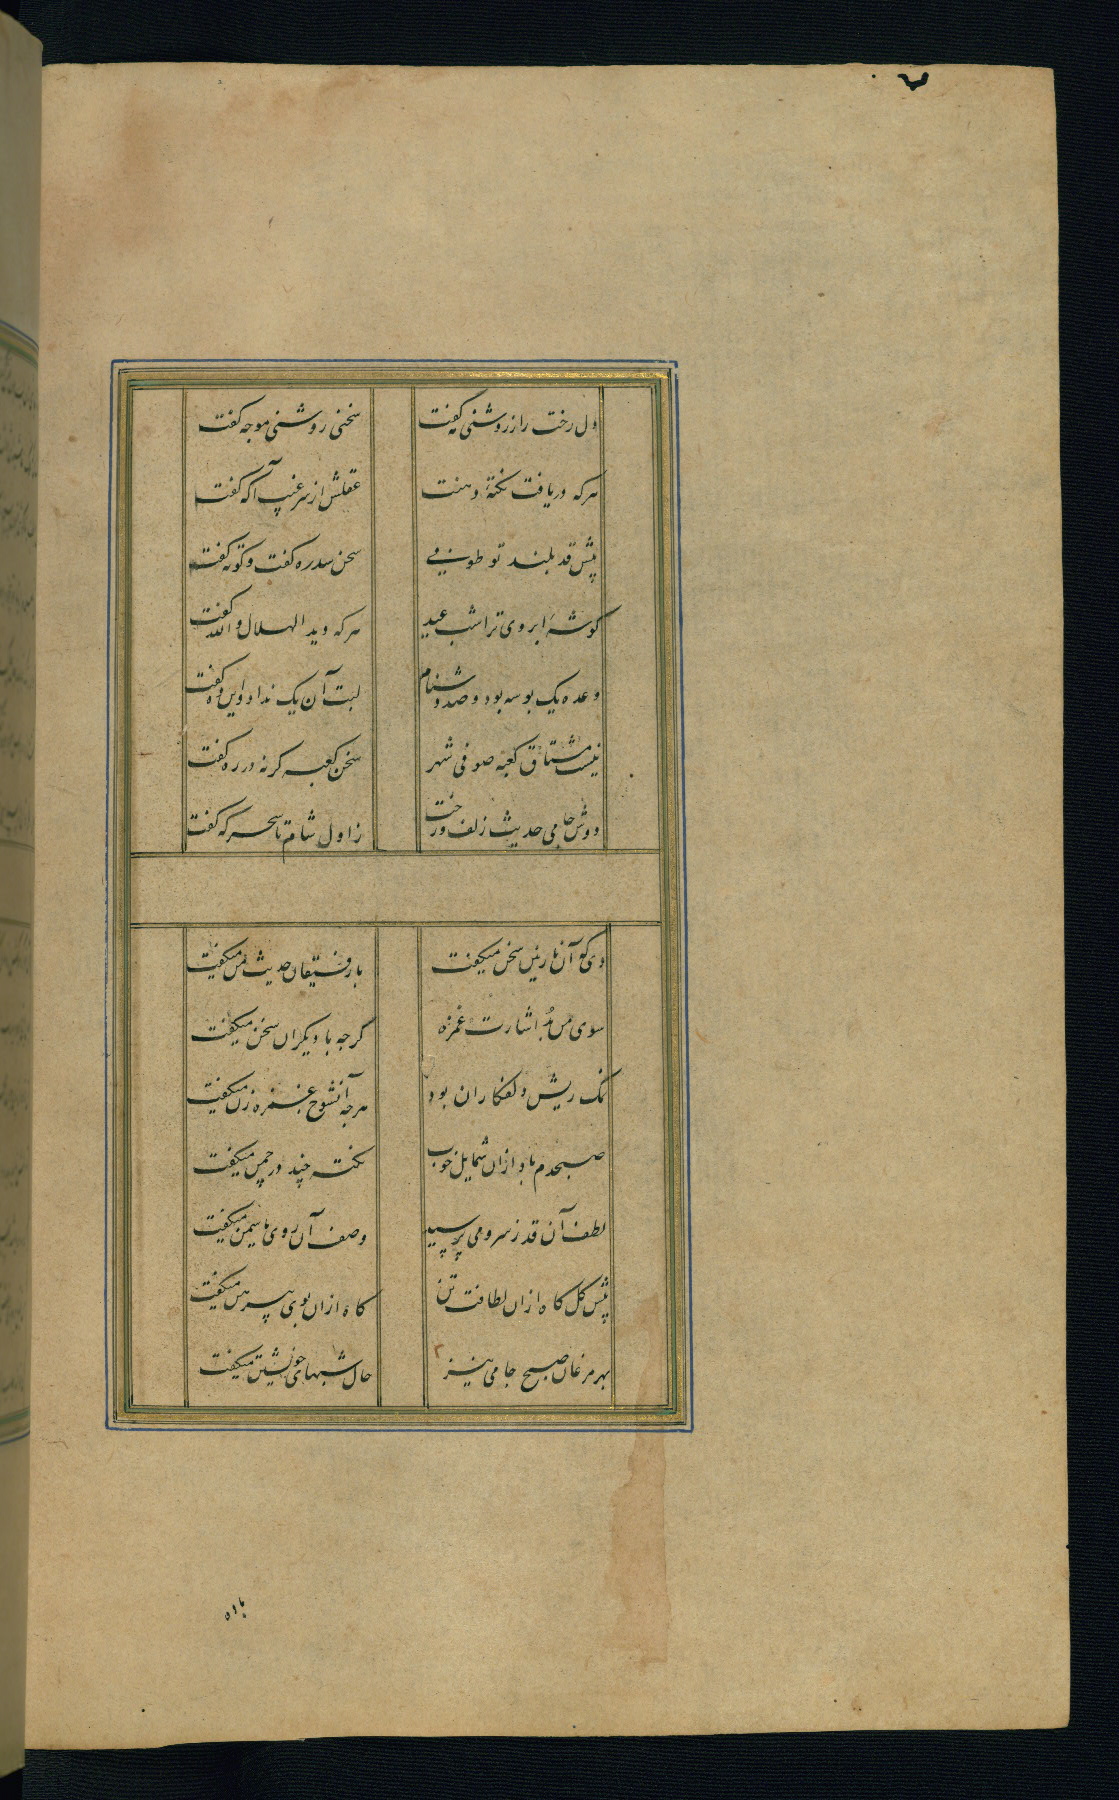 دل رخت را ز روشنی مه گفت
سخنی روشنی موجه گفت
هرکه دریافت نکتهٔ دهنت
عقلش از سر غیب آگه گفت
پیش قد بلند تو طوبی
سخن سدره گفت و کوته گفت
گوشهٔ ابروی ترا شب عید
هرکه دید الهلال والله گفت
وعده یک بوسه بود و صد دشنام
لبت آن یک نداد و این ده گفت
نیست مشتاق کعبه صوفی شهر
سخن کعبه گرنه در ره گفت
دوش جامی حدیث زلف و رخت
ز اول شام تا سحرگه گفت
دی که آن نازنین سخن میگفت
با رفیقان حدیث من میگفت
سوی من بد اشارت غمزه
گرچه با دیگران سخن میگفت
نمک ریش دلفکاران بود
هرچه آن شوخ غمزه زن میگفت
صبحدم باد ازان شمایل خوب
نکته چند در چمن میگفت
لطف آن قد ز سرو می پرسید
وصف آن روی با سمن میگفت
پیش گل گاه ازان لطافت تن
گاه ازان بوی پیرهن میگفت
بهر مرغان صبح جامی نیز
حال شبهای خویشتن میگفت